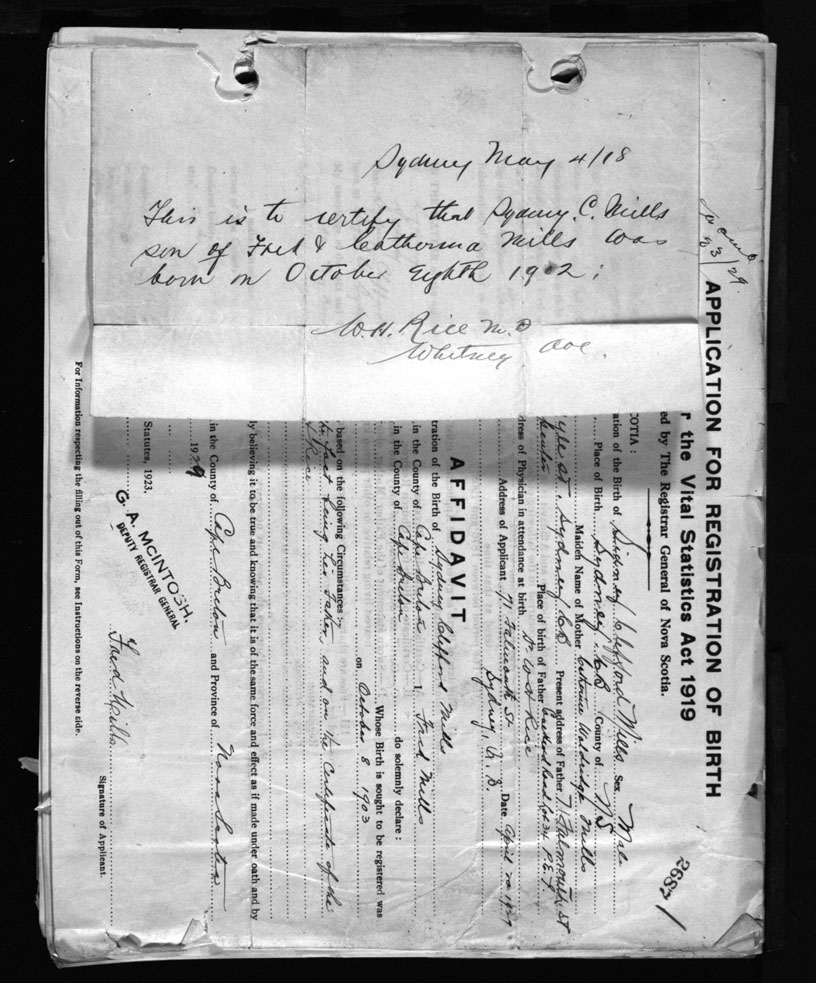 Sydney May 4/18
This is to certify that Sydney. C. Mills
son of Fred & Catherina Mills was
born on October Eighth 1902;
W.H. Rice M.D
Whitney Ave.
23/29.
2682
APPLICATION FOR REGISTRATION OF BIRTH
r the Vital Statistics Act 1919
ed by The Registrar General of Nova Scotia.
COTIA:
ation of the Birth of Sidney Clifford Mills Sex Male
Place of Birth Sydney, CB County of NS
Maiden Name of Mother Mills
St. Sydney CB Present address of Father 71 Falmouth St
Place of birth of Father Lot P.E.I
dress of Physician in attendance at birth Dr W H Rice
Address of Applicant 71 Falmouth St Date April 20 1929
Sydney, C. B.
AFFIDAVIT
tration of the Birth of Sydney Clifford Mills
in the County of Cape Breton I, Fred Mills
in the County of Cape Breton do solemnly declare:
Whose Birth is sought to be registered was
on October 8 1903
based on the following Circumstances:
the fact being his Father and on the Certificate of the
Rice
by believing it to be true and knowing that it is of the same force and effect as if made under oath and by
in the County of Cape Breton and Province of Nova Scotia
1929
Statutes, 1923,
G. A. McINTOSH,
DEPUTY REGISTRAR GENERAL
Fred Mills
Signature of Applicant.
For Information respecting the filling out of this Form, see Instructions on the reverse side.